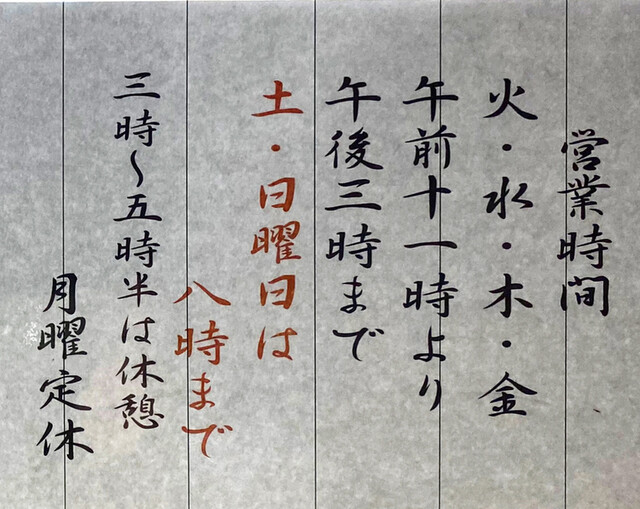 営業時間
火・水・木・金
午前十一時より
午後三時まで
土・日曜日は
八時まで
三時～五時半は休憩
月曜定休